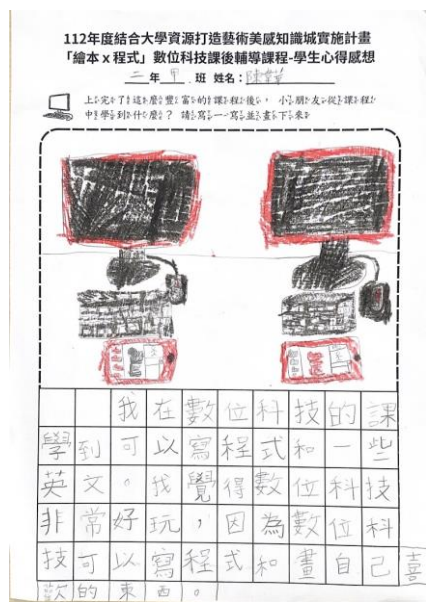 112年度結合大學資源打造藝術美感知識城實施計畫
「繪本x程式」數位科技課後輔導課程-學生心得感想
二年 甲.班 姓名:陳
上完了這麼豐富的課程後,小朋友從課程
中學到什麼?請寫一寫並畫下來
我在數位科技的課
學到可以寫程式和一些
英文。我覺得數位科技
非常好玩,因為數位科
技可以寫程式和畫自己喜
歡的東西。